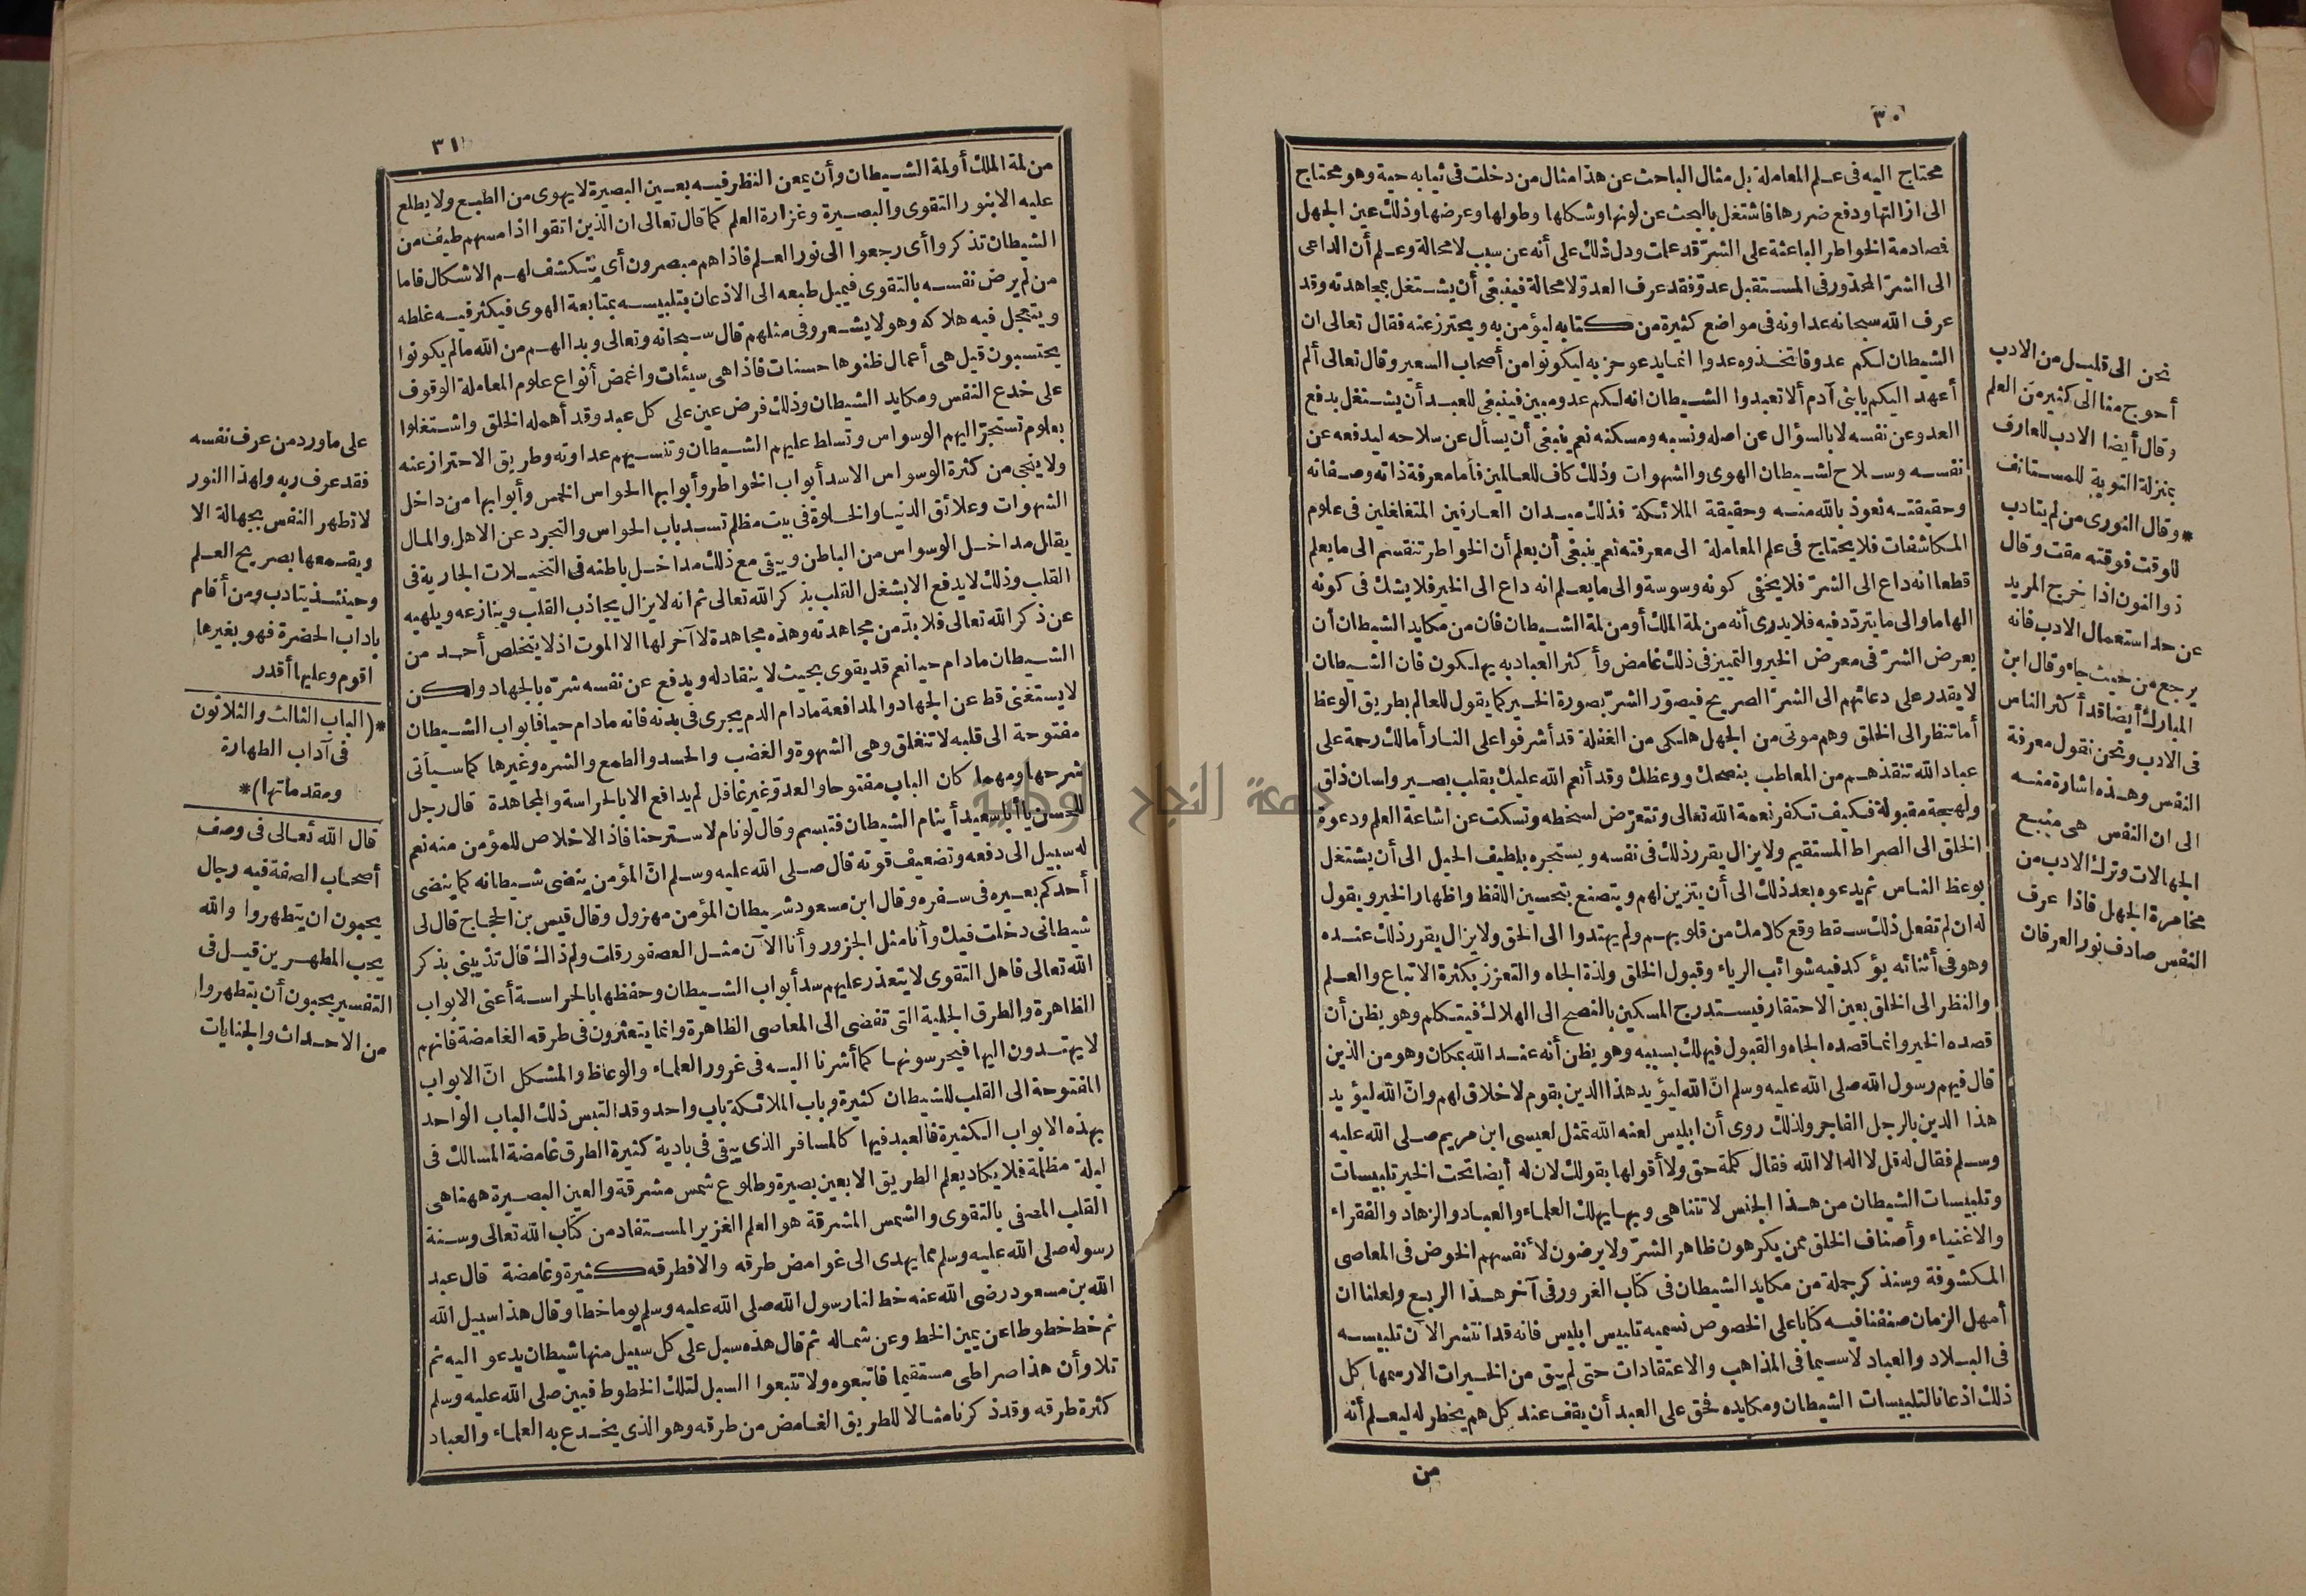 ٣٠
محتاج اليه فى علم المعاملة بل مثال الباحث عن هذا مثال من دخلت فى ثيابه حية وهو محتاج
الى ازالتها ودفع ضررها فاشتغل بالبحث عن لونها وشكلها وطولها وعرضها وذلك عين الجهل
فصادمة الخواطر الباعثة على الشرّ قد علمت ودل ذلك على أنه عن سبب لا محالة وعلم أن الداعى
الى الشرّ المحذور فى المستقبل عدوّ فقد عرف العدوّ لا محالة فينبغى أن يشتغل بمجاهدته وقد
عرف الله سبحانه عداوته فى مواضع كثيرة من كتابه ليؤمن به ويحترز عنه فقال تعالى ان
الشيطان لكم عدوّ فاتخذوه عدوا انما يدعو حزبه ليكونوا من أصحاب السعير وقال تعالى ألم
أعهد اليكم يا بنى آدم ألا تعبدوا الشيطان انه لكم عدو مبين فينبغى للعبد أن يشتغل بدفع
العدو عن نفسه لا بالسؤال عن اصله ونسبه ومسكنه نعم ينبغى أن يسأل عن سلاحه ليدفعه عن
نفسه وسلاح الشيطان الهوى والشهوات وذلك كاف للعالمين فاما معرفة ذاته وصفاته
وحقيقته نعوذ بالله منه وحقيقة الملائكة فذلك ميدان العارفين المتغلغلين فى علوم
المكاشفات فلا يحتاج فى علم المعاملة الى معرفته نعم ينبغى أن يعلم أن الخواطر تنقسم الى ما يعلم
قطعا انه داع الى الشرّ فلا يخفى كونه وسوسة والى ما يعلم انه داع الى الخير فلا يشك فى كونه
الهاما والى ما يتردّد فيه فلا يدرى أنه من لمة الملك أو من لمة الشيطان فان من مكايد الشيطان أن
يعرض الشرّ فى معرض الخير والتمييز فى ذلك غامض وأكثر العباد به يهلكون فان الشيطان
لا يقدر على دعائهم الى الشرّ الصريح فيصوّر الشرّ بصورة الخير كما يقول للعالم بطريق الوعظ
أما تنظر الى الخلق وهم موتى من الجهل هلكى من الغفلة قد أشرفوا على النار أما لك رحمة على
عباد الله تنقذهم من المعاطب بنصحك ووعظك وقد أنعم الله عليك بقلب بصير ولسان ذلق
ولهجة مقبولة فكيف تكفر نعمة الله تعالى وتتعرّض لسخطه وتسكت عن اشاعة العلم ودعوة
الخلق الى الصراط المستقيم ولا يزال يقرر ذلك فى نفسه ويستجره بلطيف الحيل الى أن يشتغل
بوعظ الناس ثم يدعوه بعد ذلك الى أن يتزين لهم ويتصنع بتحسين اللفظ واظهار الخير ويقول
له ان لم تفعل ذلك سقط وقع كلامك من قلوبهم ولم يهتدوا الى الحق ولا يزال يقرر ذلك عنده
وهو فى أثنائه يؤكد فيه شوائب الرياء وقبول الخلق ولذة الجاه والتعزز بكثرة الاتباع والعلم
والنظر الى الخلق بعين الاحتقار فيستدرج المسكين بالنصح الى الهلاك فيتكلم وهو يظن أن
قصده الخير وانما قصده الجاه والقبول فيهلك بسببه وهو يظن أنه عند الله بمكان وهو من الذين
قال فيهم رسول الله صلى الله عليه وسلم انّ الله ليؤيد هذا الدين بقوم لا خلاق لهم وانّ الله ليؤيد
هذا الدين بالرجل الفاجر ولذلك روى أن ابليس لعنه الله تمثل لعيسى ابن مريم صلى الله عليه
وسلم فقال له قل لا اله الا الله فقال كلمة حق ولا أقولها بقولك لان له أيضا تحت الخير تلبيسات
وتلبيسات الشيطان من هذا الجنس لا تتناهى وبها يهلك العلماء والعباد والزهاد والفقراء
والاغنياء وأصناف الخلق ممن يكرهون ظاهر الشرّ ولا يرضون لأنفسهم الخوض فى المعاصى
المكشوفة وسنذكر جملة من مكايد الشيطان فى كتاب الغرور فى آخر هذا الربع ولعلنا ان
أمهل الزمان صنفنا فيه كتابا على الخصوص نسميه تلبيس ابليس فانه قد انتشر الآن تلبيسه
فى البلاد والعباد لا سيما فى المذاهب والاعتقادات حتى لم يبق من الخيرات الا رسمها كل
ذلك اذعانا لتلبيسات الشيطان ومكايده فحق على العبد أن يقف عند كل هم يخطر له ليعلم أنه
من
نحن الى قليل من الادب
أحوج منا الى كثير من العلم
وقال أيضا الادب للعارف
بمنزلة التوبة للمستأنف
* وقال النورى من لم يتادب
للوقت فوقته مقت وقال
ذو النون اذا خرج المريد
عن حد استعمال الادب فانه
يرجع من حيث جاء وقال ابن
المبارك أيضا قد أكثر الناس
فى الادب ونحن نقول معرفة
النفس وهذه اشارة منه
الى ان النفس هى منبع
الجهالات وترك الادب من
مخامرة الجهل فاذا عرف
النفس صادف نور العرفان
٣١
من لمة الملك أو لمة الشيطان وأن يمعن النظر فيه بعين البصيرة لا بهوى من الطبع ولا يطلع
عليه الا بنور التقوى والبصيرة وغزارة العلم كما قال تعالى ان الذين اتقوا اذا مسهم طيف من
الشيطان تذكروا أى رجعوا الى نور العلم فاذا هم مبصرون أى ينكشف لهم الاشكال فاما
من لم يرض نفسه بالتقوى فيميل طبعه الى الاذعان بتلبيسه بمتابعة الهوى فيكثر فيه غلطه
ويتعجل فيه هلاكه وهو لا يشعر وفى مثلهم قال سبحانه وتعالى وبدا لهم من الله ما لم يكونوا
يحتسبون قيل هى أعمال ظنوها حسنات فاذا هى سيئات واغمض أنواع علوم المعاملة الوقوف
على خدع النفس ومكايد الشيطان وذلك فرض عين على كل عبد وقد أهمله الخلق واشتغلوا
بعلوم تستجرّ اليهم الوسواس وتسلط عليهم الشيطان وتنسيهم عداوته وطريق الاحتراز عنه
ولا ينجى من كثرة الوسواس الا سد أبواب الخواطر وأبوابها الحواس الخمس وأبوابها من داخل
الشهوات وعلائق الدنيا والخلوة فى بيت مظلم تسد باب الحواس والتجرد عن الاهل والمال
يقلل مداخل الوسواس من الباطن ويبقى مع ذلك مداخل باطنه فى التخيلات الجارية فى
القلب وذلك لا يدفع الا بشغل القلب بذكر الله تعالى ثم انه لا يزال يجاذب القلب وينازعه ويلهيه
عن ذكر الله تعالى فلا بدّ من مجاهدته وهذه مجاهدة لا آخر لها الا الموت اذ لا يتخلص أحد من
الشيطان مادام حيا نعم قد يقوى بحيث لا ينقاد له ويدفع عن نفسه شرّه بالجهاد ولكن
لا يستغنى قط عن الجهاد والمدافعة مادام الدم يجرى فى بدنه فانه مادام حيا فابواب الشيطان
مفتوحة الى قلبه لا تنغلق وهى الشهوة والغضب والحسد والطمع والشره وغيرها كما سيأتى
شرحها ومهما كان الباب مفتوحا والعدوّ غير غافل لم يدافع الا بالحراسة والمجاهدة قال رجل
للحسن يا أبا سعيد أينام الشيطان فتبسم وقال لو نام لاسترحنا فاذا لا خلاص للمؤمن منه نعم
له سبيل الى دفعه وتضعيف قوته قال صلى الله عليه وسلم انّ المؤمن ينضى شيطانه كما ينضى
أحدكم بعيره فى سفره وقال ابن مسعود شيطان المؤمن مهزول وقال قيس بن الحجاج قال لى
شيطانى دخلت فيك وأنا مثل الجزور وأنا الآن مثل العصفور قلت ولم ذاك قال تذيبنى بذكر
الله تعالى فاهل التقوى لا يتعذر عليهم سد أبواب الشيطان وحفظها بالحراسة أعنى الابواب
الظاهرة والطرق الجلية التى تفضى الى المعاصى الظاهرة وانما يتعثرون فى طرقه الغامضة فانهم
لا يهتدون اليها فيحرسونها كما أشرنا اليه فى غرور العلماء والوعاظ والمشكل انّ الابواب
المفتوحة الى القلب للشيطان كثيرة وباب الملائكة باب واحد وقد التبس ذلك الباب الواحد
بهذه الابواب الكثيرة فالعبد فيها كالمسافر الذى يبقى فى بادية كثيرة الطرق غامضة المسالك فى
ليلة مظلمة فلا يكاد يعلم الطريق الا بعين بصيرة وطلوع شمس مشرقة والعين البصيرة ههنا هى
القلب المصفى بالتقوى والشمس المشرقة هو العلم الغزير المستفاد من كتاب الله تعالى وسنة
رسوله صلى الله عليه وسلم مما يهدى الى غوامض طرقه والا فطرقه كثيرة وغامضة قال عبد
الله بن مسعود رضى الله عنه خط لنا رسول الله صلى الله عليه وسلم يوما خطا وقال هذا سبيل الله
ثم خط خطوطا عن يمين الخط وعن شماله ثم قال هذه سبل على كل سبيل منها شيطان يدعو اليه ثم
تلا وأن هذا صراطى مستقيما فاتبعوه ولا تتبعوا السبل لتلك الخطوط فبين صلى الله عليه وسلم
كثرة طرقه وقد ذكرنا مثالا للطريق الغامض من طرقه وهو الذى يخدع به العلماء والعباد
على ما ورد من عرف نفسه
فقد عرف ربه ولهذا النور
لا تظهر النفس بجهالة الا
ويقمعها بصريح العلم
وحينئذ يتادب ومن أقام
باداب الحضرة فهو بغيرها
اقوم وعليها أقدر
*(الباب الثالث والثلاثون
فى آداب الطهارة
ومقدماتها)*
قال الله تعالى فى وصف
أصحاب الصفة فيه رجال
يحبون ان يتطهروا والله
يحب المطهرين قيل فى
التفسير يحبون أن يتطهروا
من الاحداث والجنابات
جامعة النجاح وطنية